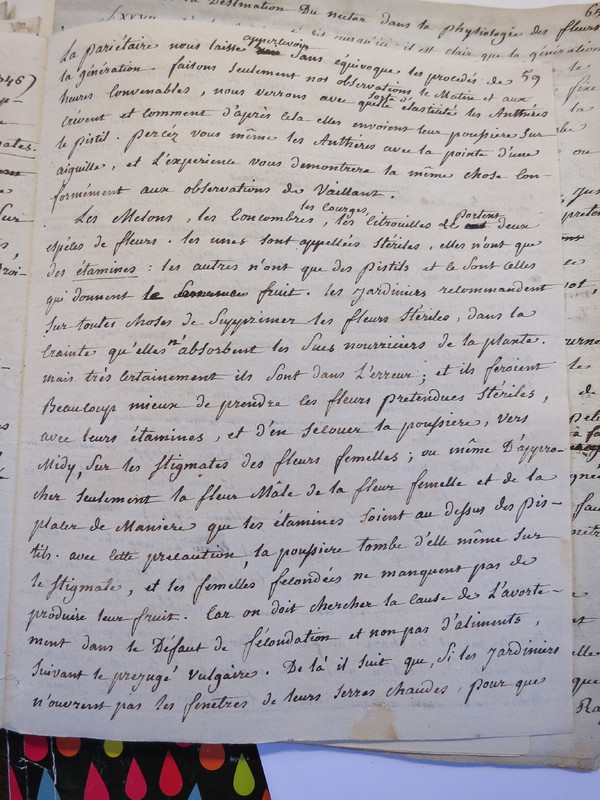 Destination Du nectar dans la physiologie des fleurs
il est clair que la génération
59
La pariétaire nous laisse appercevoir sans équivoque les procédés de
la génération. faisons seulement nos observations le Matin et aux
heures Convenables, nous verrons avec quelle sorte d'élasticité les Anthères
crèvent et comment d'après cela elles envoient leur poussière sur
le pistil. Percez vous même les Anthères avec la pointe d'une
aiguille, et L'experience vous demontrera la même chose Con-
formément aux observations de Vaillant.
Les Melons, les Concombres, les Courges, les Citrouilles portent deux
espéces de fleurs. les unes sont appellées Steriles, elles n'ont que
des étamines : les autres n'ont que des Pistils et ce sont Celles
qui donnent le fruit. les jardiniers recommandent
sur toutes choses de supprimer les fleurs Stériles, dans la
Crainte qu'elles n'absorbent les Sucs nourriciers de la plante.
mais très Certainement ils sont dans L'erreur ; et ils feroient
Beaucoup mieux de prendre les fleurs pretendues Stériles,
avec leurs étamines, et d'en secouer la poussiere, vers
Midy, sur les stigmates des fleurs femelles ; ou même D'appro-
cher seulement la fleur Mâle de la fleur femelle et de la
placer de Maniere que les étamines soient au dessus des Pis-
tils. avec cette precaution, la poussiere tombe d'elle même sur
le stigmate, et les femelles fécondées ne manquent pas de
produire leur fruit. Car on doit chercher la Cause de L'avorte-
ment dans le Défaut de fécondation et non pas d'aliments,
suivant le prejugé vulgaire. De là il suit que, si les jardiniers
n'ouvrent pas les fenêtres de leurs serres chaudes, pour que